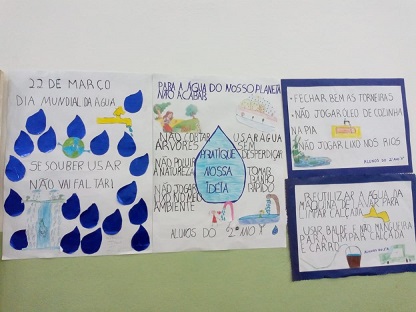 22 DE MARÇO
DIA MUNDIAL DA ÁGUA
SE SOUBER USAR
NÃO VAI FALTAR!
PARA A ÁGUA DO NOSSO PLANETA
NÃO ACABAR
NÃO CORTAR
ÁRVORES
NÃO POLUIR
A NATUREZA
NÃO JOGAR
LIXO NO MEIO
AMBIENTE
PRATIQUE
NOSSA
IDEIA
USAR ÁGUA
SEM
DESPERDIÇAR
TOMAR
BANHO
RÁPIDO
ALUNOS DO 2º ANO
• FECHAR BEM AS TORNEIRAS
• NÃO JOGAR ÓLEO DE COZINHA
NA PIA
NÃO JOGAR LIXO NOS RIOS
ALUNOS DO 2º ANO
REUTILIZAR A ÁGUA DA
MÁQUINA DE LAVAR PARA
LIMPAR CALÇADA
USAR BALDE E NÃO MANGUEIRA
PARA LIMPAR CALÇADA
E CARRO